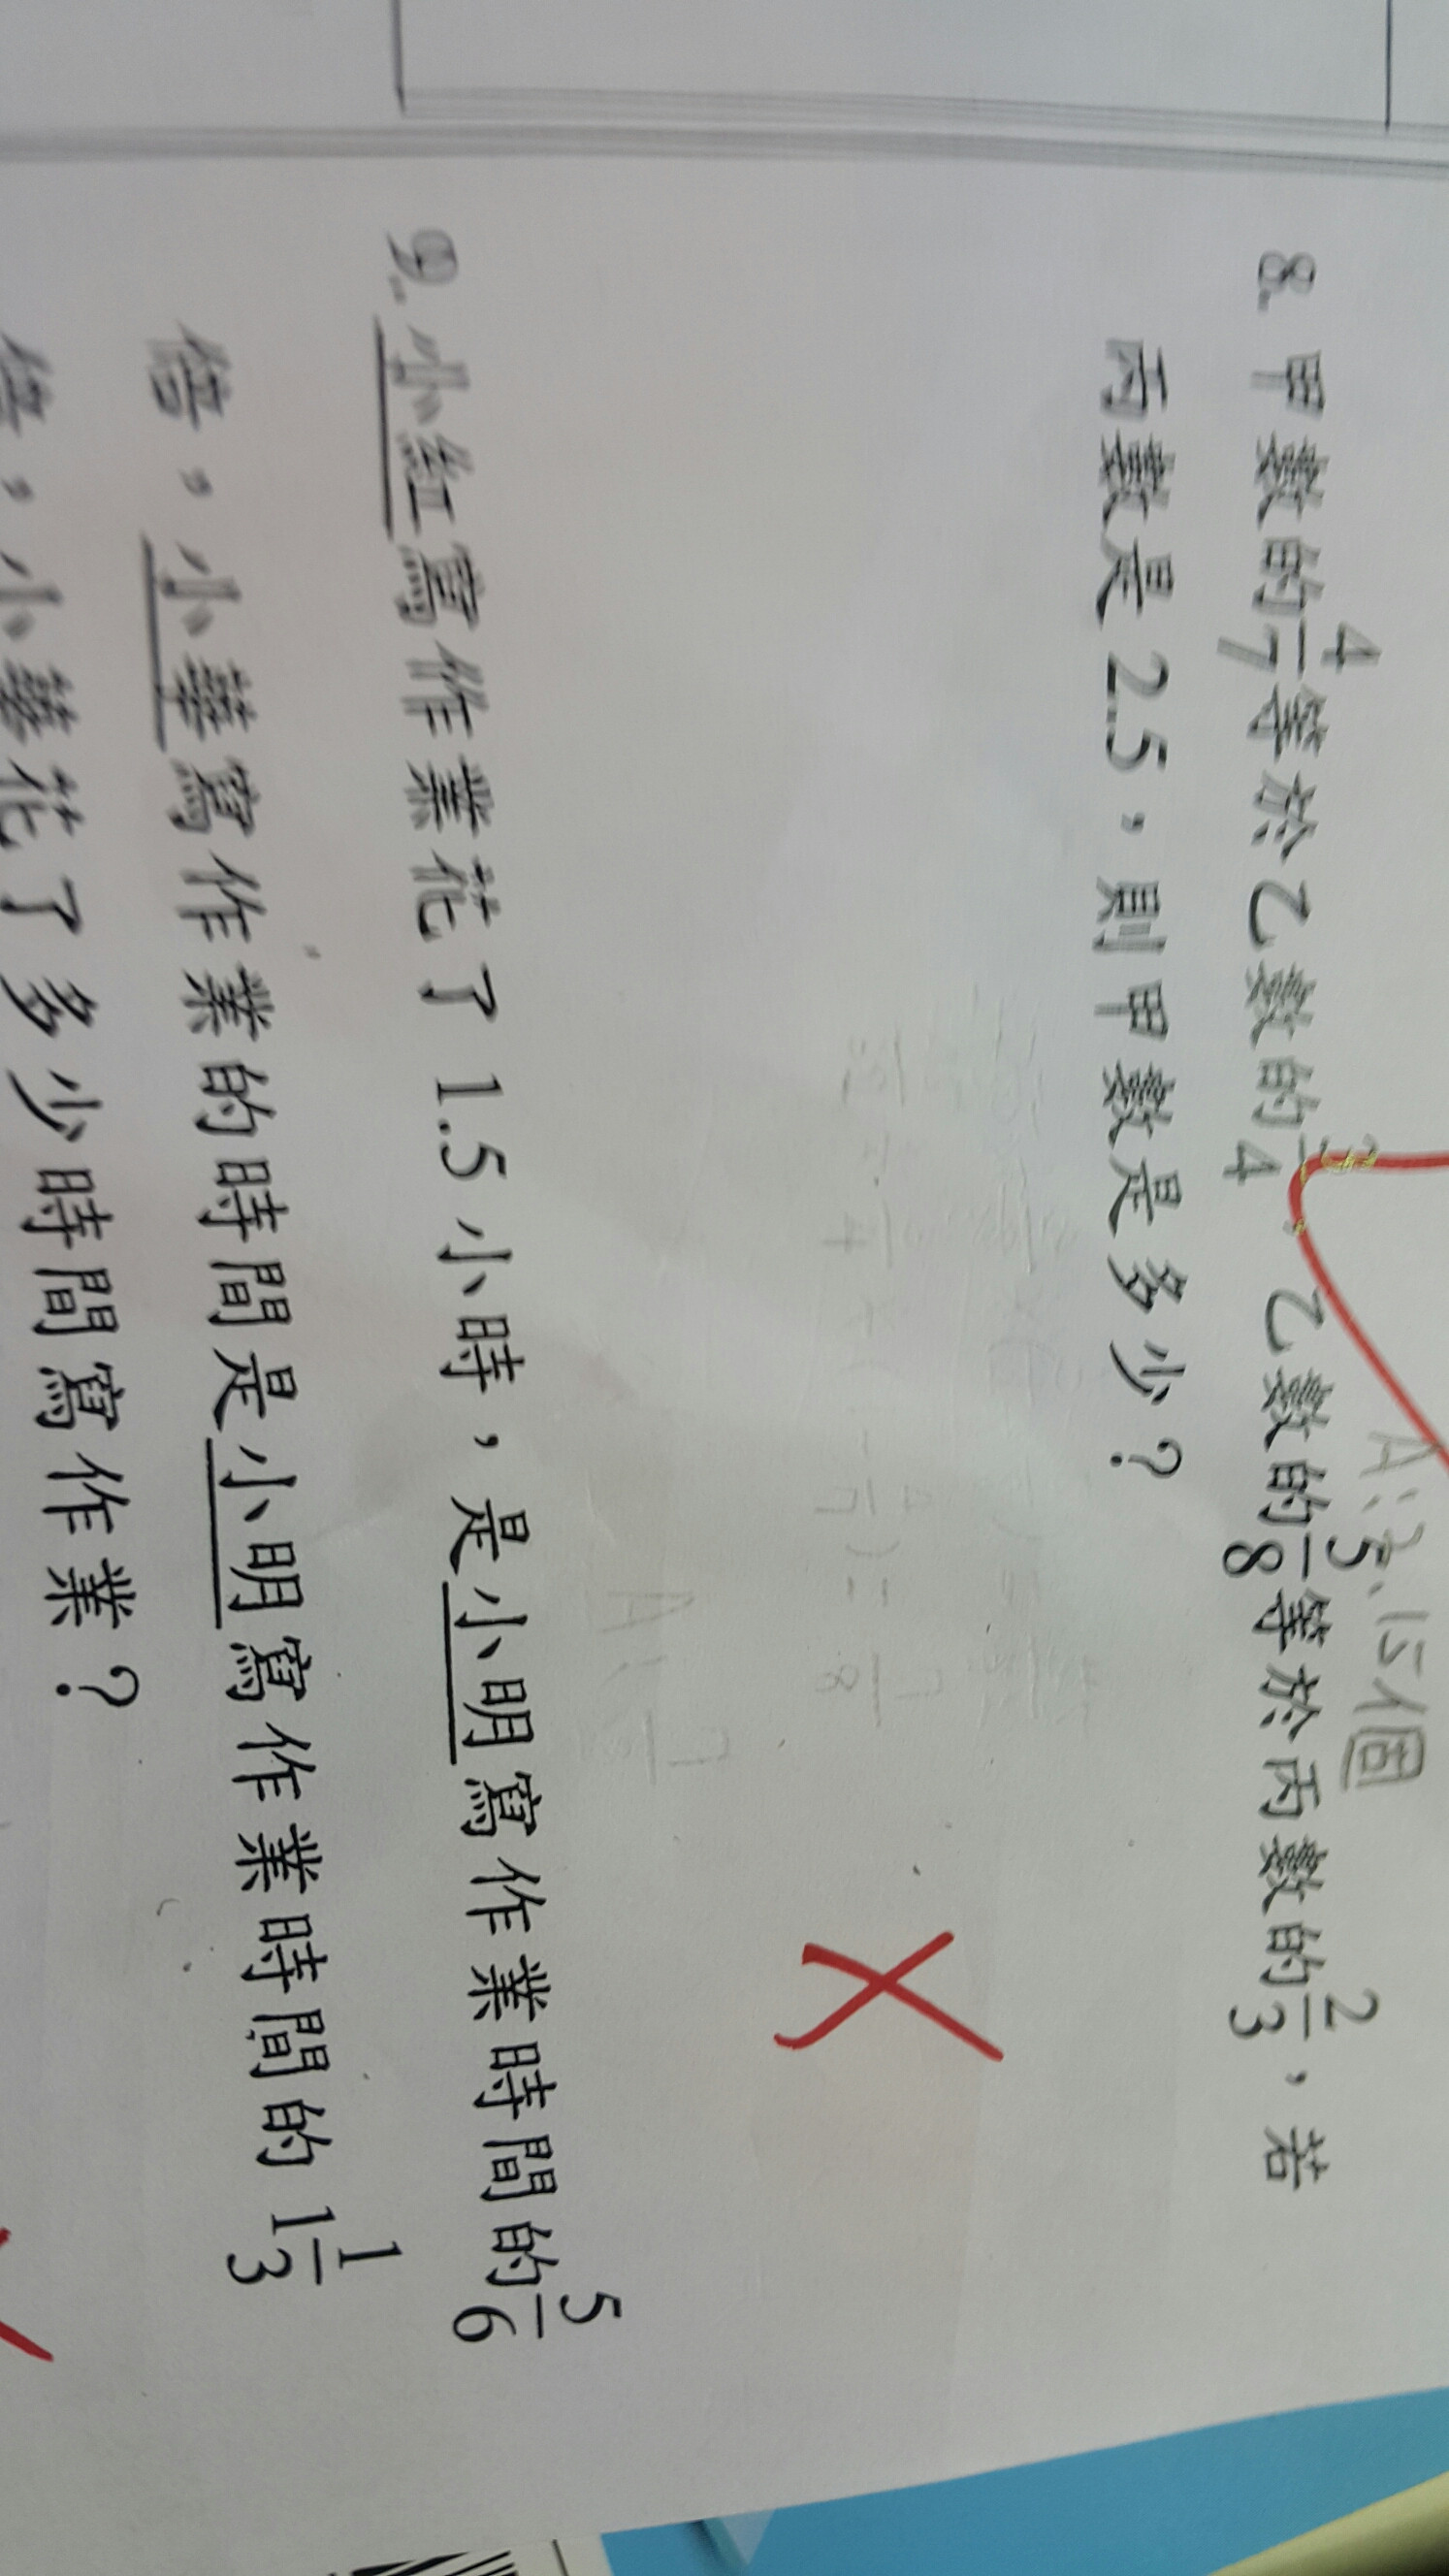 A:3.15個
8. 甲數的4/7等於乙數的3/4，乙數的5/8等於丙數的2/3，若
丙數是2.5，則甲數是多少？
9. 小紅寫作業花了1.5小時，是小明寫作業時間的5/6
倍，小華寫作業的時間是小明寫作業時間的1 1/3
倍，小華花了多少時間寫作業？